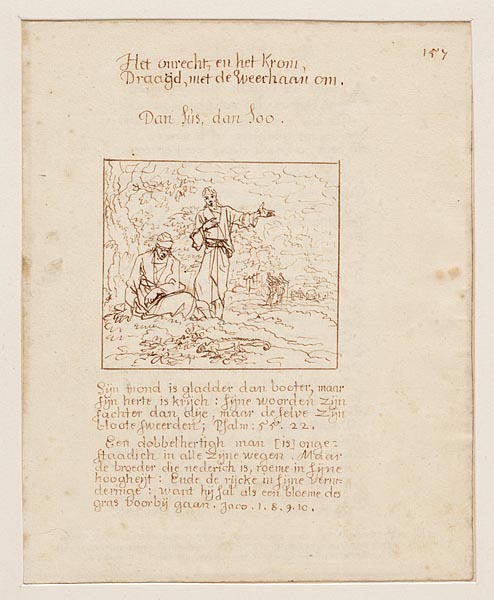 157
Het onrecht, en het Krom,
Draaijd, met de Weerhaan om.
Dan sus, dan soo.
Sijn mond is gladder dan booter, maar
sijn herte, is krijch: sijne woorden zijn
sachter dan olije, maar de selve zijn
bloote sweerden; Psalm: 55. 22.
Een dobbelhertigh man [is] onge-
staadich in alle zijne wegen. Maar
de broeder die nederich is, roeme in sijne
hoogheijt: Ende de rijcke in sijne vernu-
deringe: want hij sal als een bloeme des
gras voorbij gaan. Jaco. 1. 8. 9. 10.